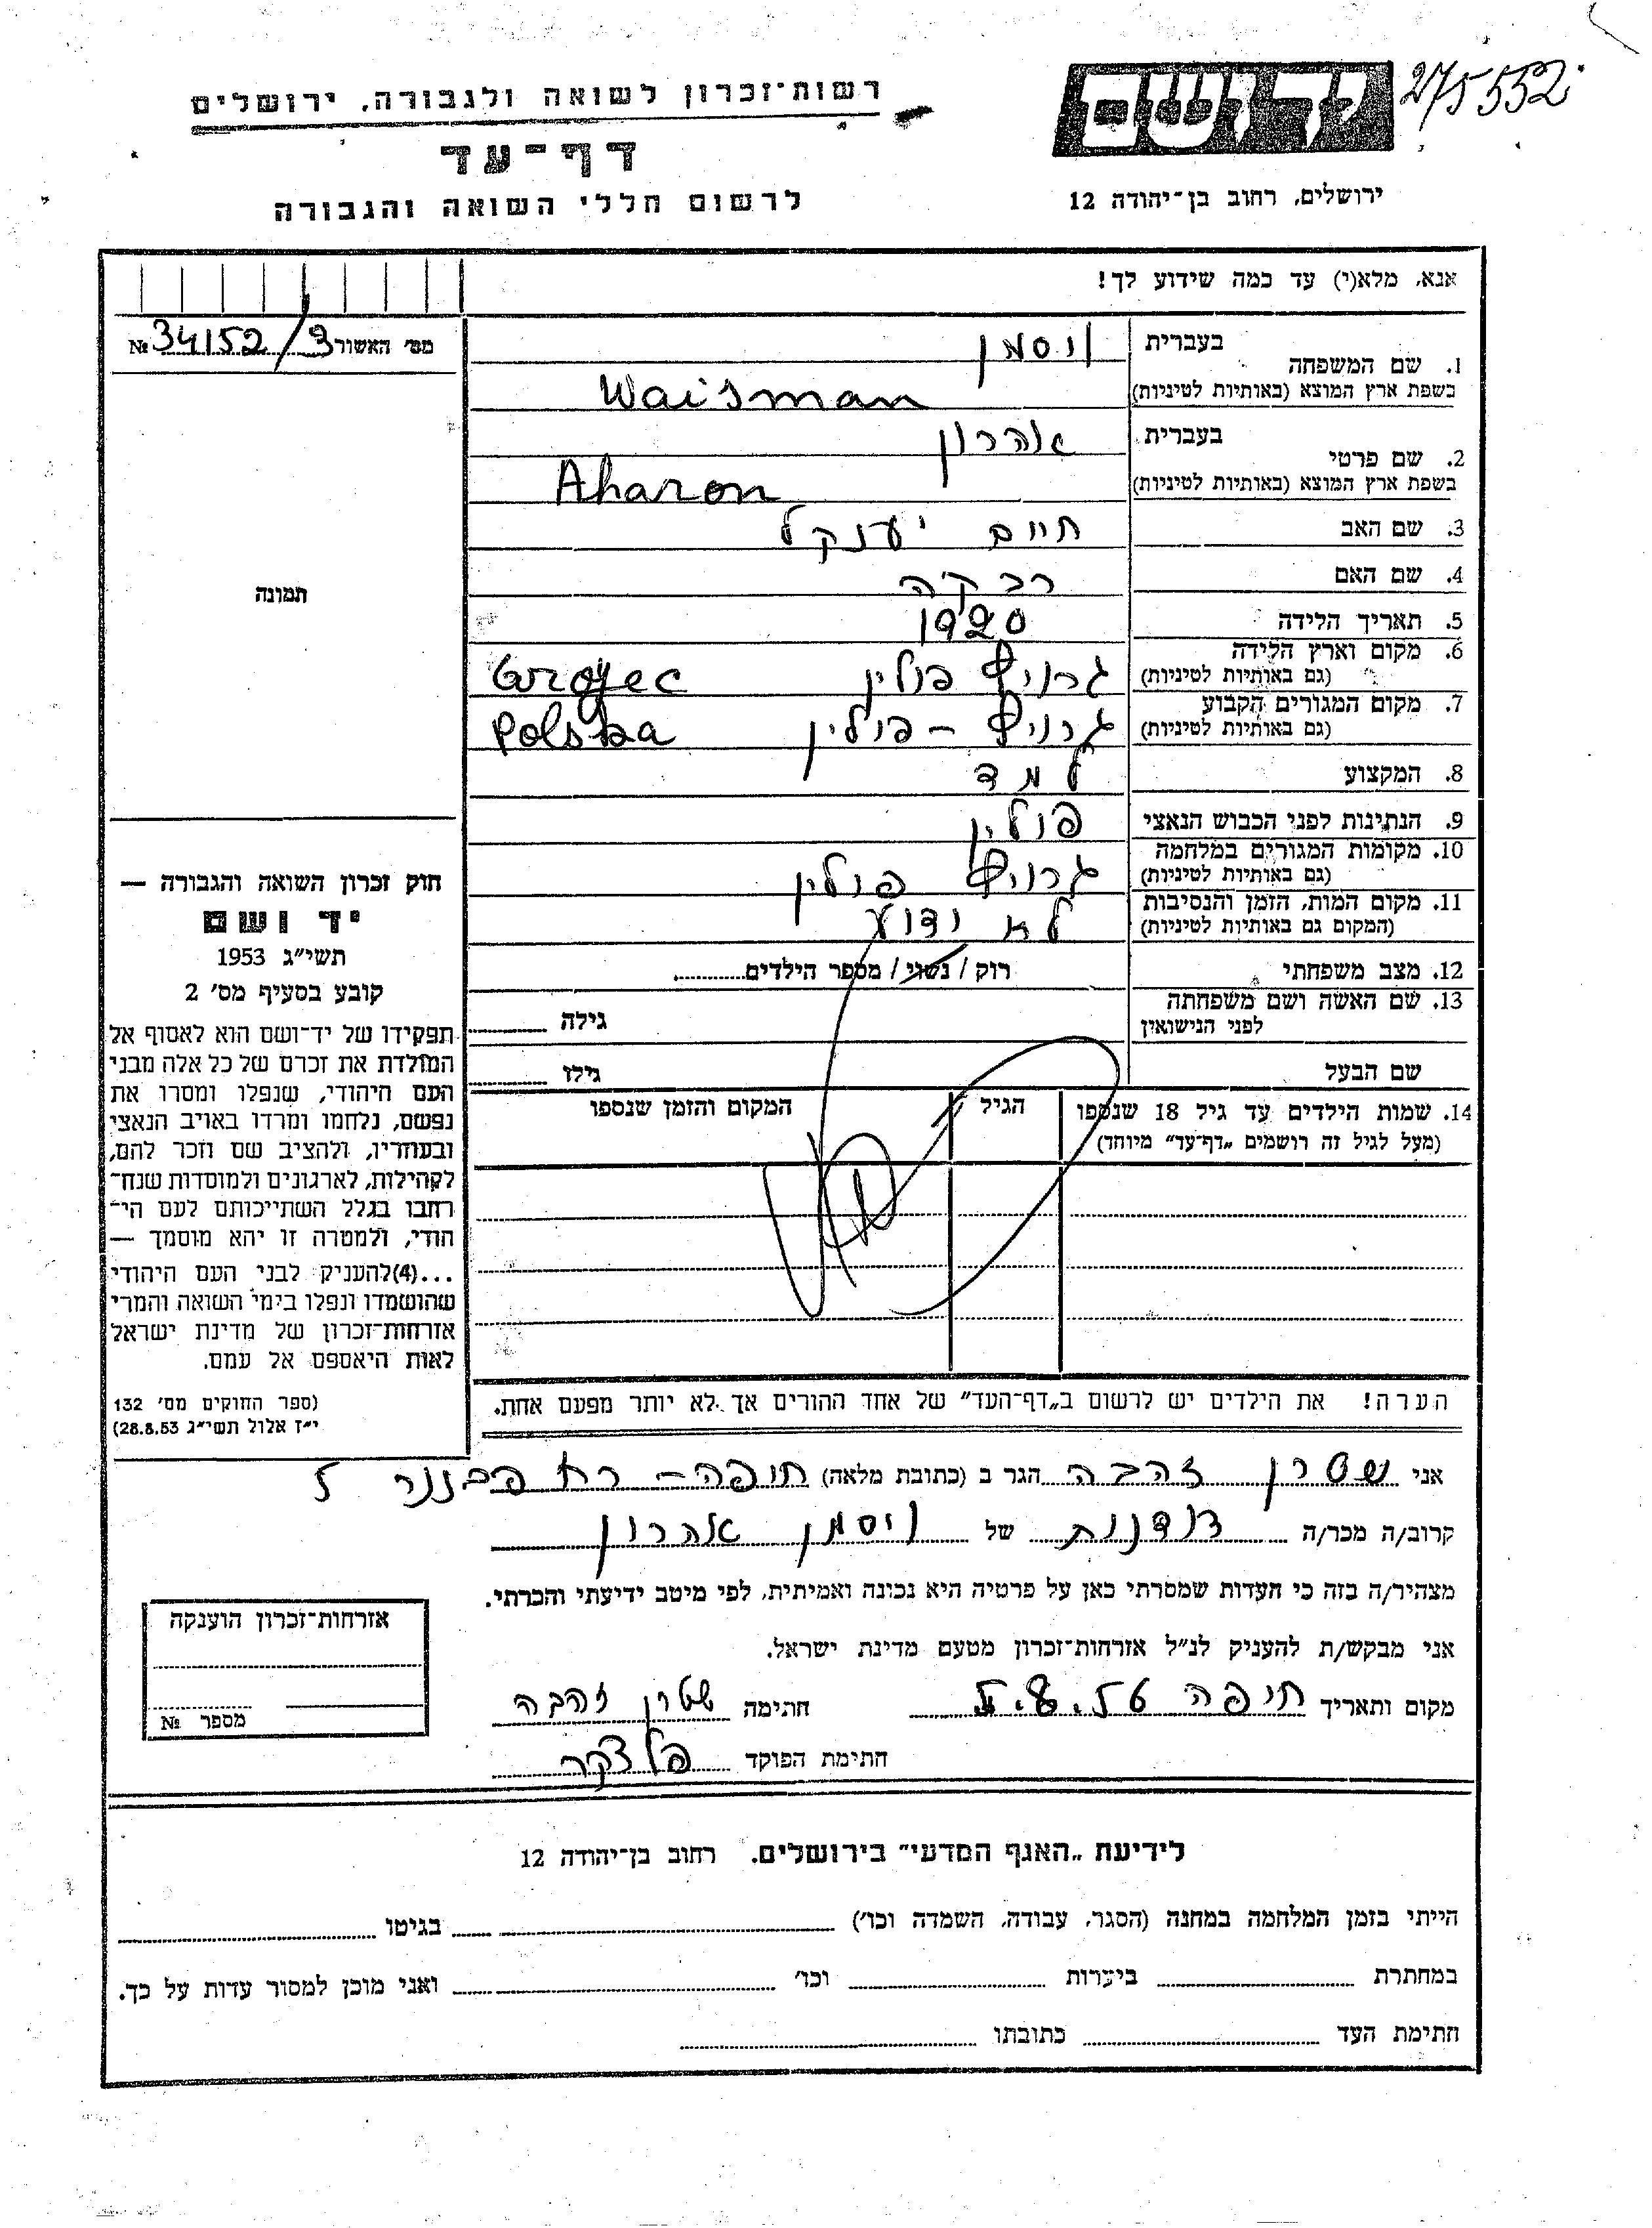 275552
רשות-זכרון לשואה ולגבורה, ירושלים
יד ושם
דף-עד
לרשום חללי השואה והגבורה
ירושלים, רחוב בן-יהודה 12
אנא, מלא(י) עד כמה שידוע לך!
מס׳ האשור 34152/3 №
תמונה
1. שם המשפחה
בעברית ויסמן
בשפת ארץ המוצא (באותיות לטיניות) Waisman
2. שם פרטי
בעברית אהרון
בשפת ארץ המוצא (באותיות לטיניות) Aharon
3. שם האב חיים יענקל
4. שם האם רבקה
5. תאריך הלידה 1920
6. מקום וארץ הלידה
(גם באותיות לטיניות) גרויץ פולין Grojec
7. מקום המגורים הקבוע
(גם באותיות לטיניות) גרויץ – פולין Polska
8. המקצוע למד
9. הנתינות לפני הכבוש הנאצי פולין
10. מקומות המגורים במלחמה
(גם באותיות לטיניות) גרויץ פולין
11. מקום המות, הזמן והנסיבות
(המקום גם באותיות לטיניות) לא ידוע
12. מצב משפחתי רוק / נשוי / מספר הילדים
13. שם האשה ושם משפחתה
לפני הנישואין גילה
שם הבעל גילו
14. שמות הילדים עד גיל 18 שנספו הגיל המקום והזמן שנספו
(מעל לגיל זה רושמים „דף-עד״ מיוחד)
חוק זכרון השואה והגבורה —
יד ושם
תשי״ג 1953
קובע בסעיף מס׳ 2
תפקידו של יד-ושם הוא לאסוף אל
המולדת את זכרם של כל אלה מבני
העם היהודי, שנפלו ומסרו את
נפשם, נלחמו ומרדו באויב הנאצי
ובעוזריו, ולהציב שם וזכר להם,
לקהילות, לארגונים ולמוסדות שנח־
רחבו בגלל השתייכותם לעם הי־
הודי, ולמטרה זו יהא מוסמך —
...(4)להעניק לבני העם היהודי
שהושמדו ונפלו בימי השואה והמרי
אזרחות-זכרון של מדינת ישראל
לאות היאספם אל עמם.
(ספר החוקים מס׳ 132
י״ז אלול תשי״ג 28.8.53)
הערה! את הילדים יש לרשום ב„דף-העד״ של אחד ההורים אך לא יותר מפעם אחת.
אני שטרן זהבה הגר ב (כתובת מלאה) חיפה – רח
קרוב/ה מכר/ה דודנות של ויסמן אהרון
מצהיר/ה בזה כי העדות שמסרתי כאן על פרטיה היא נכונה ואמיתית, לפי מיטב ידיעתי והכרתי.
אני מבקש/ת להעניק לנ״ל אזרחות-זכרון מטעם מדינת ישראל.
מקום ותאריך חיפה 5.8.56 חתימה שטרן זהבה
חתימת הפוקד פלצקר
אזרחות-זכרון הוענקה
מספר №
לידיעת „האגף המדעי״ בירושלים. רחוב בן-יהודה 12
הייתי בזמן המלחמה במחנה (הסגר, עבודה, השמדה וכו׳) בגיטו
במחתרת ביערות וכו׳ ואני מוכן למסור עדות על כך.
חתימת העד כתובתו